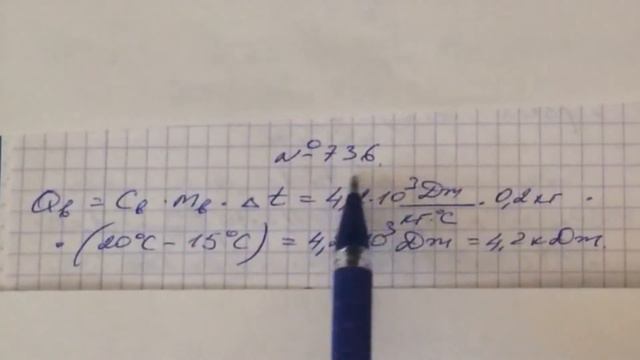 № 736.
Qв = Cв · mв · Δt = 4, · 10³ Дж/кг·°C · 0,2 кг ·
· (20°C – 15°C) = 4, 10³ Дж = 4,2 кДж.